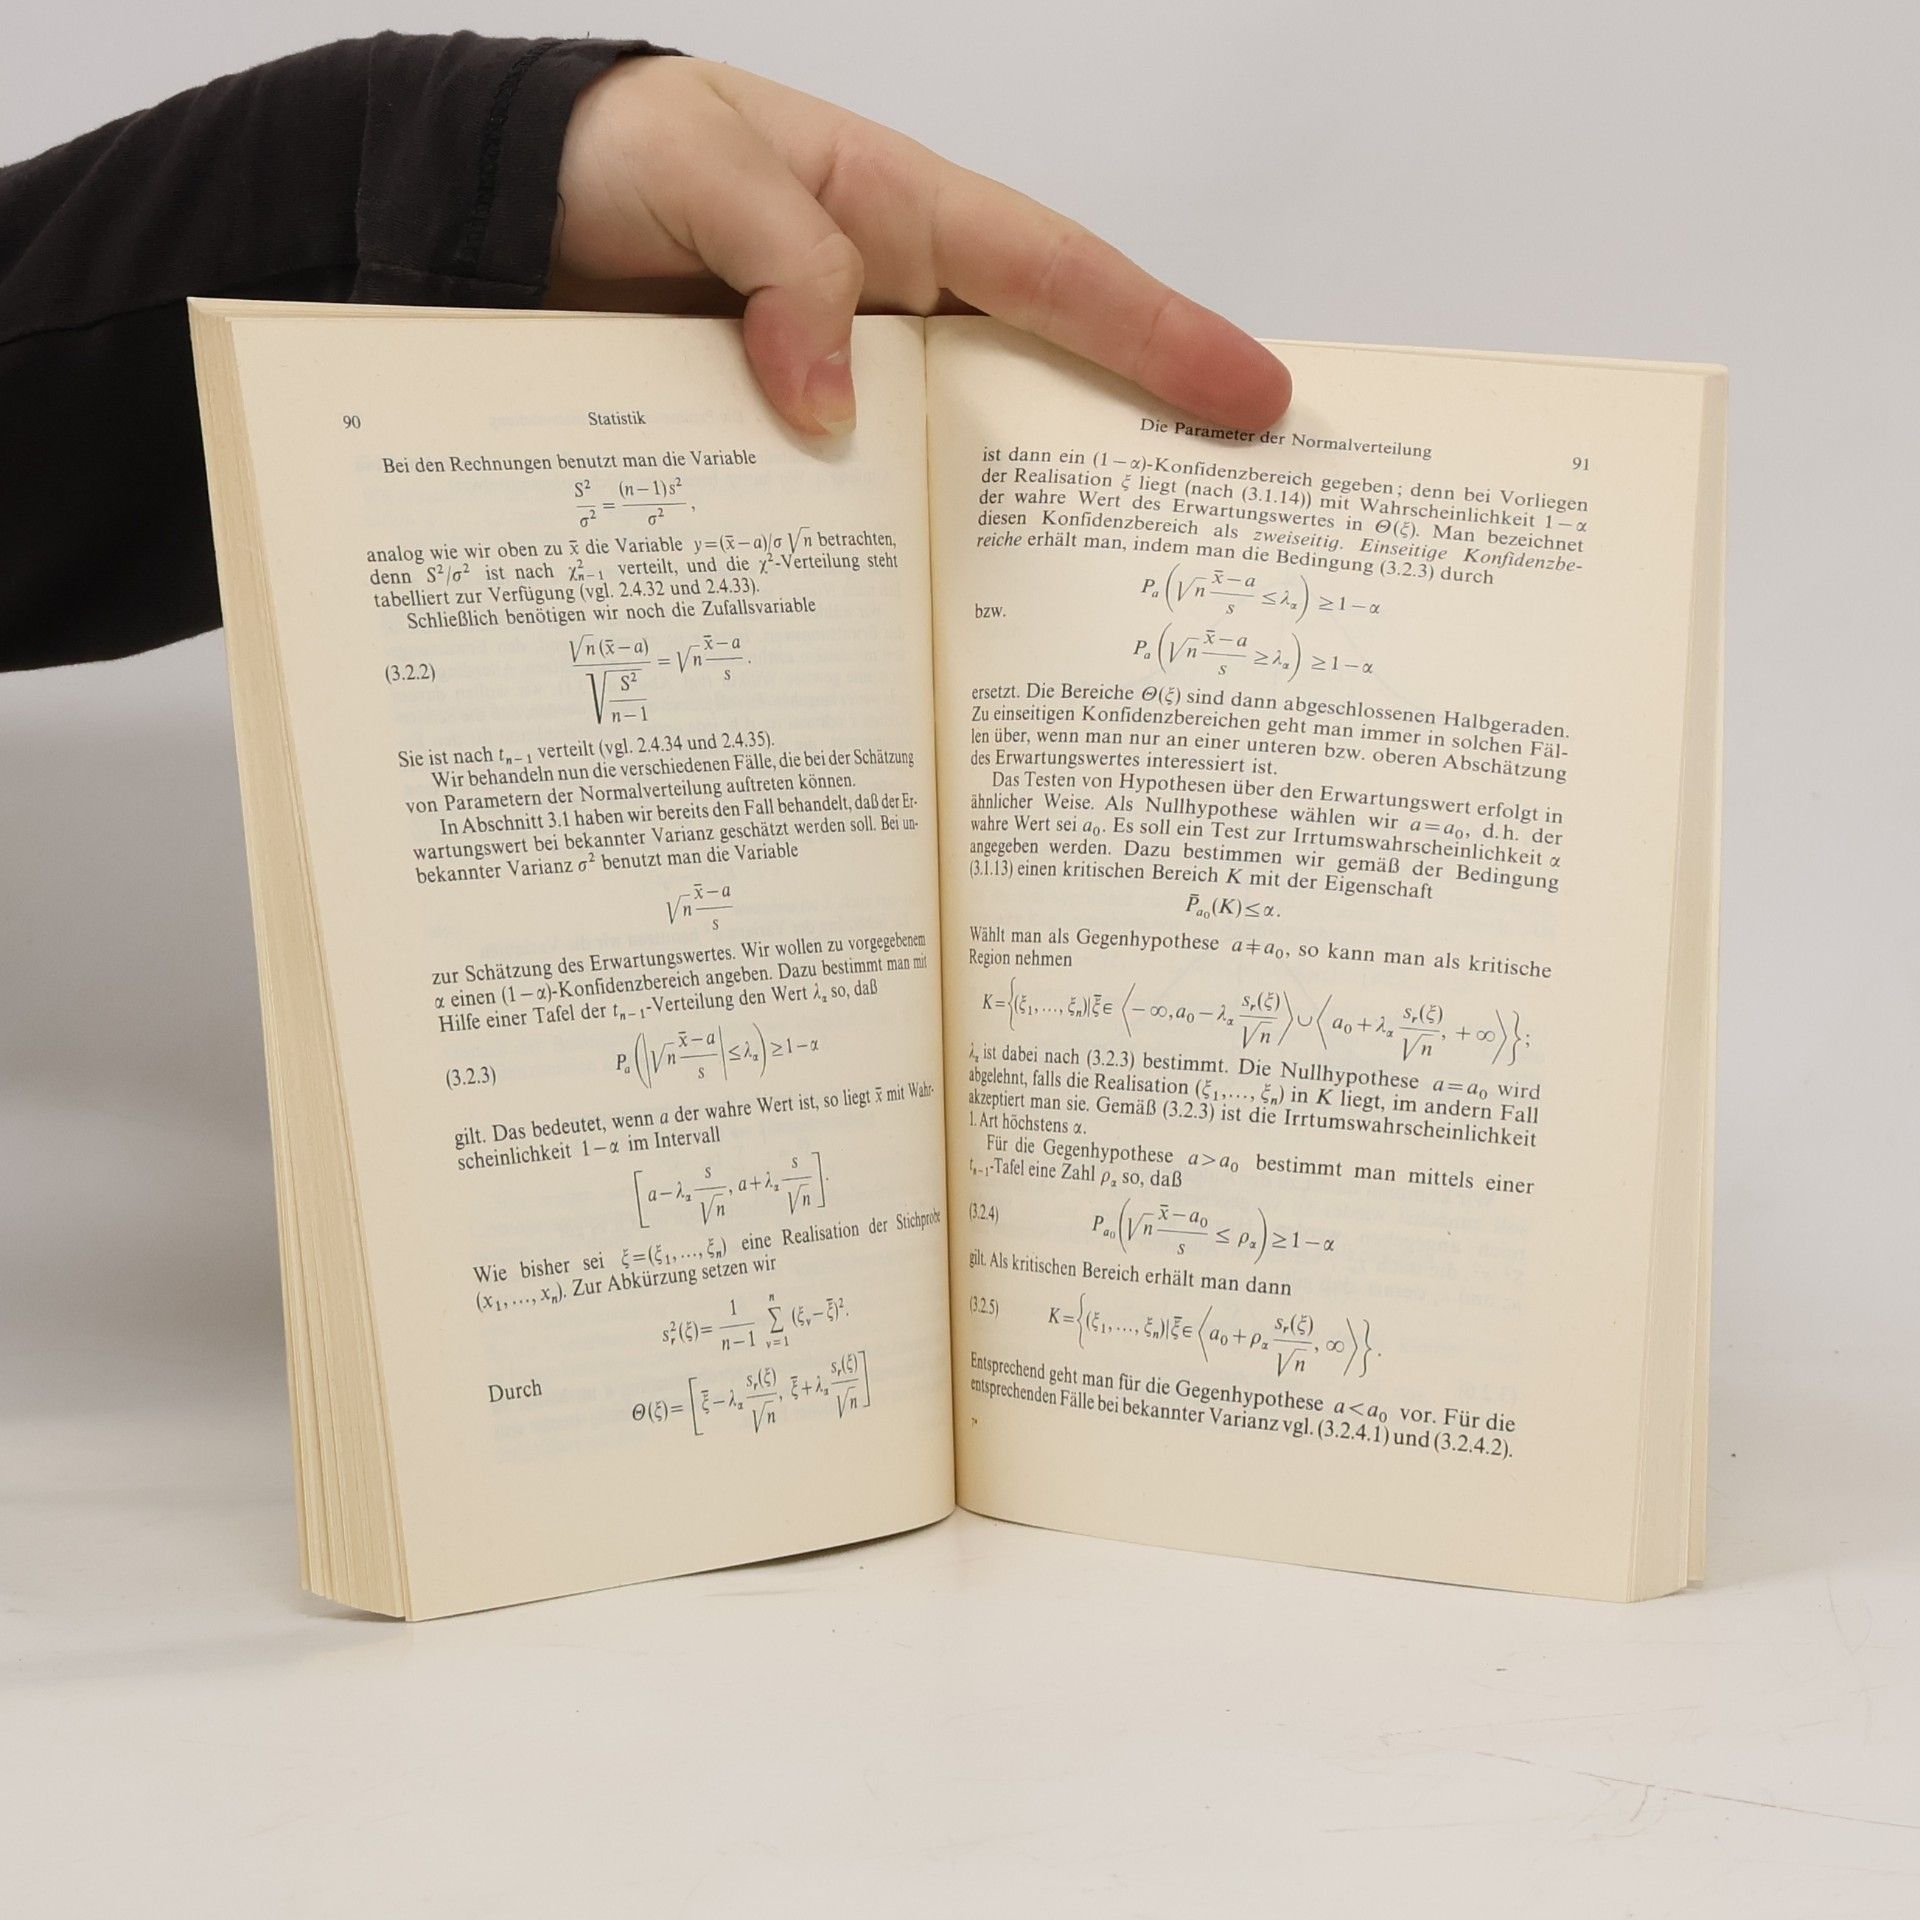 90 Statistik
Bei den Rechnungen benutzt man die Variable
S²/σ² = (n−1)s²/σ²,
analog wie wir oben zu x̄ die Variable y=(x̄−a)/σ √n betrachten,
denn S²/σ² ist nach χ²ₙ₋₁ verteilt, und die χ²-Verteilung steht
tabelliert zur Verfügung (vgl. 2.4.32 und 2.4.33).
Schließlich benötigen wir noch die Zufallsvariable
(3.2.2) √n(x̄−a)/√(S²/(n−1)) = √n (x̄−a)/s.
Sie ist nach tₙ₋₁ verteilt (vgl. 2.4.34 und 2.4.35).
Wir behandeln nun die verschiedenen Fälle, die bei der Schätzung
von Parametern der Normalverteilung auftreten können.
In Abschnitt 3.1 haben wir bereits den Fall behandelt, daß der Er-
wartungswert bei bekannter Varianz geschätzt werden soll. Bei un-
bekannter Varianz σ² benutzt man die Variable
√n (x̄−a)/s
zur Schätzung des Erwartungswertes. Wir wollen zu vorgegebenem
α einen (1−α)-Konfidenzbereich angeben. Dazu bestimmt man mit
Hilfe einer Tafel der tₙ₋₁-Verteilung den Wert λ_α so, daß
(3.2.3) P_a(|√n (x̄−a)/s| ≤ λ_α) ≥ 1−α
gilt. Das bedeutet, wenn a der wahre Wert ist, so liegt x̄ mit Wahr-
scheinlichkeit 1−α im Intervall
[a−λ_α s/√n, a+λ_α s/√n].
Wie bisher sei ξ=(ξ₁,…,ξₙ) eine Realisation der Stichprobe
(x₁,…,xₙ). Zur Abkürzung setzen wir
s_r²(ξ) = 1/(n−1) ∑_{ν=1}^{n} (ξ_ν−ξ̄)².
Durch Θ(ξ) = [ξ̄−λ_α s_r(ξ)/√n, ξ̄+λ_α s_r(ξ)/√n]
Die Parameter der Normalverteilung 91
ist dann ein (1−α)-Konfidenzbereich gegeben; denn bei Vorliegen
der Realisation ξ liegt (nach (3.1.14)) mit Wahrscheinlichkeit 1−α
der wahre Wert des Erwartungswertes in Θ(ξ). Man bezeichnet
diesen Konfidenzbereich als zweiseitig. Einseitige Konfidenzbe-
reiche erhält man, indem man die Bedingung (3.2.3) durch
P_a(√n (x̄−a)/s ≤ λ_α) ≥ 1−α
bzw.
P_a(√n (x̄−a)/s ≥ λ_α) ≥ 1−α
ersetzt. Die Bereiche Θ(ξ) sind dann abgeschlossenen Halbgeraden.
Zu einseitigen Konfidenzbereichen geht man immer in solchen Fäl-
len über, wenn man nur an einer unteren bzw. oberen Abschätzung
des Erwartungswertes interessiert ist.
Das Testen von Hypothesen über den Erwartungswert erfolgt in
ähnlicher Weise. Als Nullhypothese wählen wir a=a₀, d.h. der
wahre Wert sei a₀. Es soll ein Test zur Irrtumswahrscheinlichkeit α
angegeben werden. Dazu bestimmen wir gemäß der Bedingung
(3.1.13) einen kritischen Bereich K mit der Eigenschaft
P̄_{a₀}(K) ≤ α.
Wählt man als Gegenhypothese a≠a₀, so kann man als kritische
Region nehmen
K={(ξ₁,…,ξₙ)|ξ̄∈⟨−∞, a₀−λ_α s_r(ξ)/√n⟩∪⟨a₀+λ_α s_r(ξ)/√n, +∞⟩};
λ_α ist dabei nach (3.2.3) bestimmt. Die Nullhypothese a=a₀ wird
abgelehnt, falls die Realisation (ξ₁,…,ξₙ) in K liegt, im andern Fall
akzeptiert man sie. Gemäß (3.2.3) ist die Irrtumswahrscheinlichkeit
1. Art höchstens α.
Für die Gegenhypothese a>a₀ bestimmt man mittels einer
tₙ₋₁-Tafel eine Zahl ρ_α so, daß
(3.2.4) P_{a₀}(√n (x̄−a₀)/s ≤ ρ_α) ≥ 1−α
gilt. Als kritischen Bereich erhält man dann
(3.2.5) K={(ξ₁,…,ξₙ)|ξ̄∈⟨a₀+ρ_α s_r(ξ)/√n, ∞⟩}.
Entsprechend geht man für die Gegenhypothese a<a₀ vor. Für die
entsprechenden Fälle bei bekannter Varianz vgl. (3.2.4.1) und (3.2.4.2).
7*